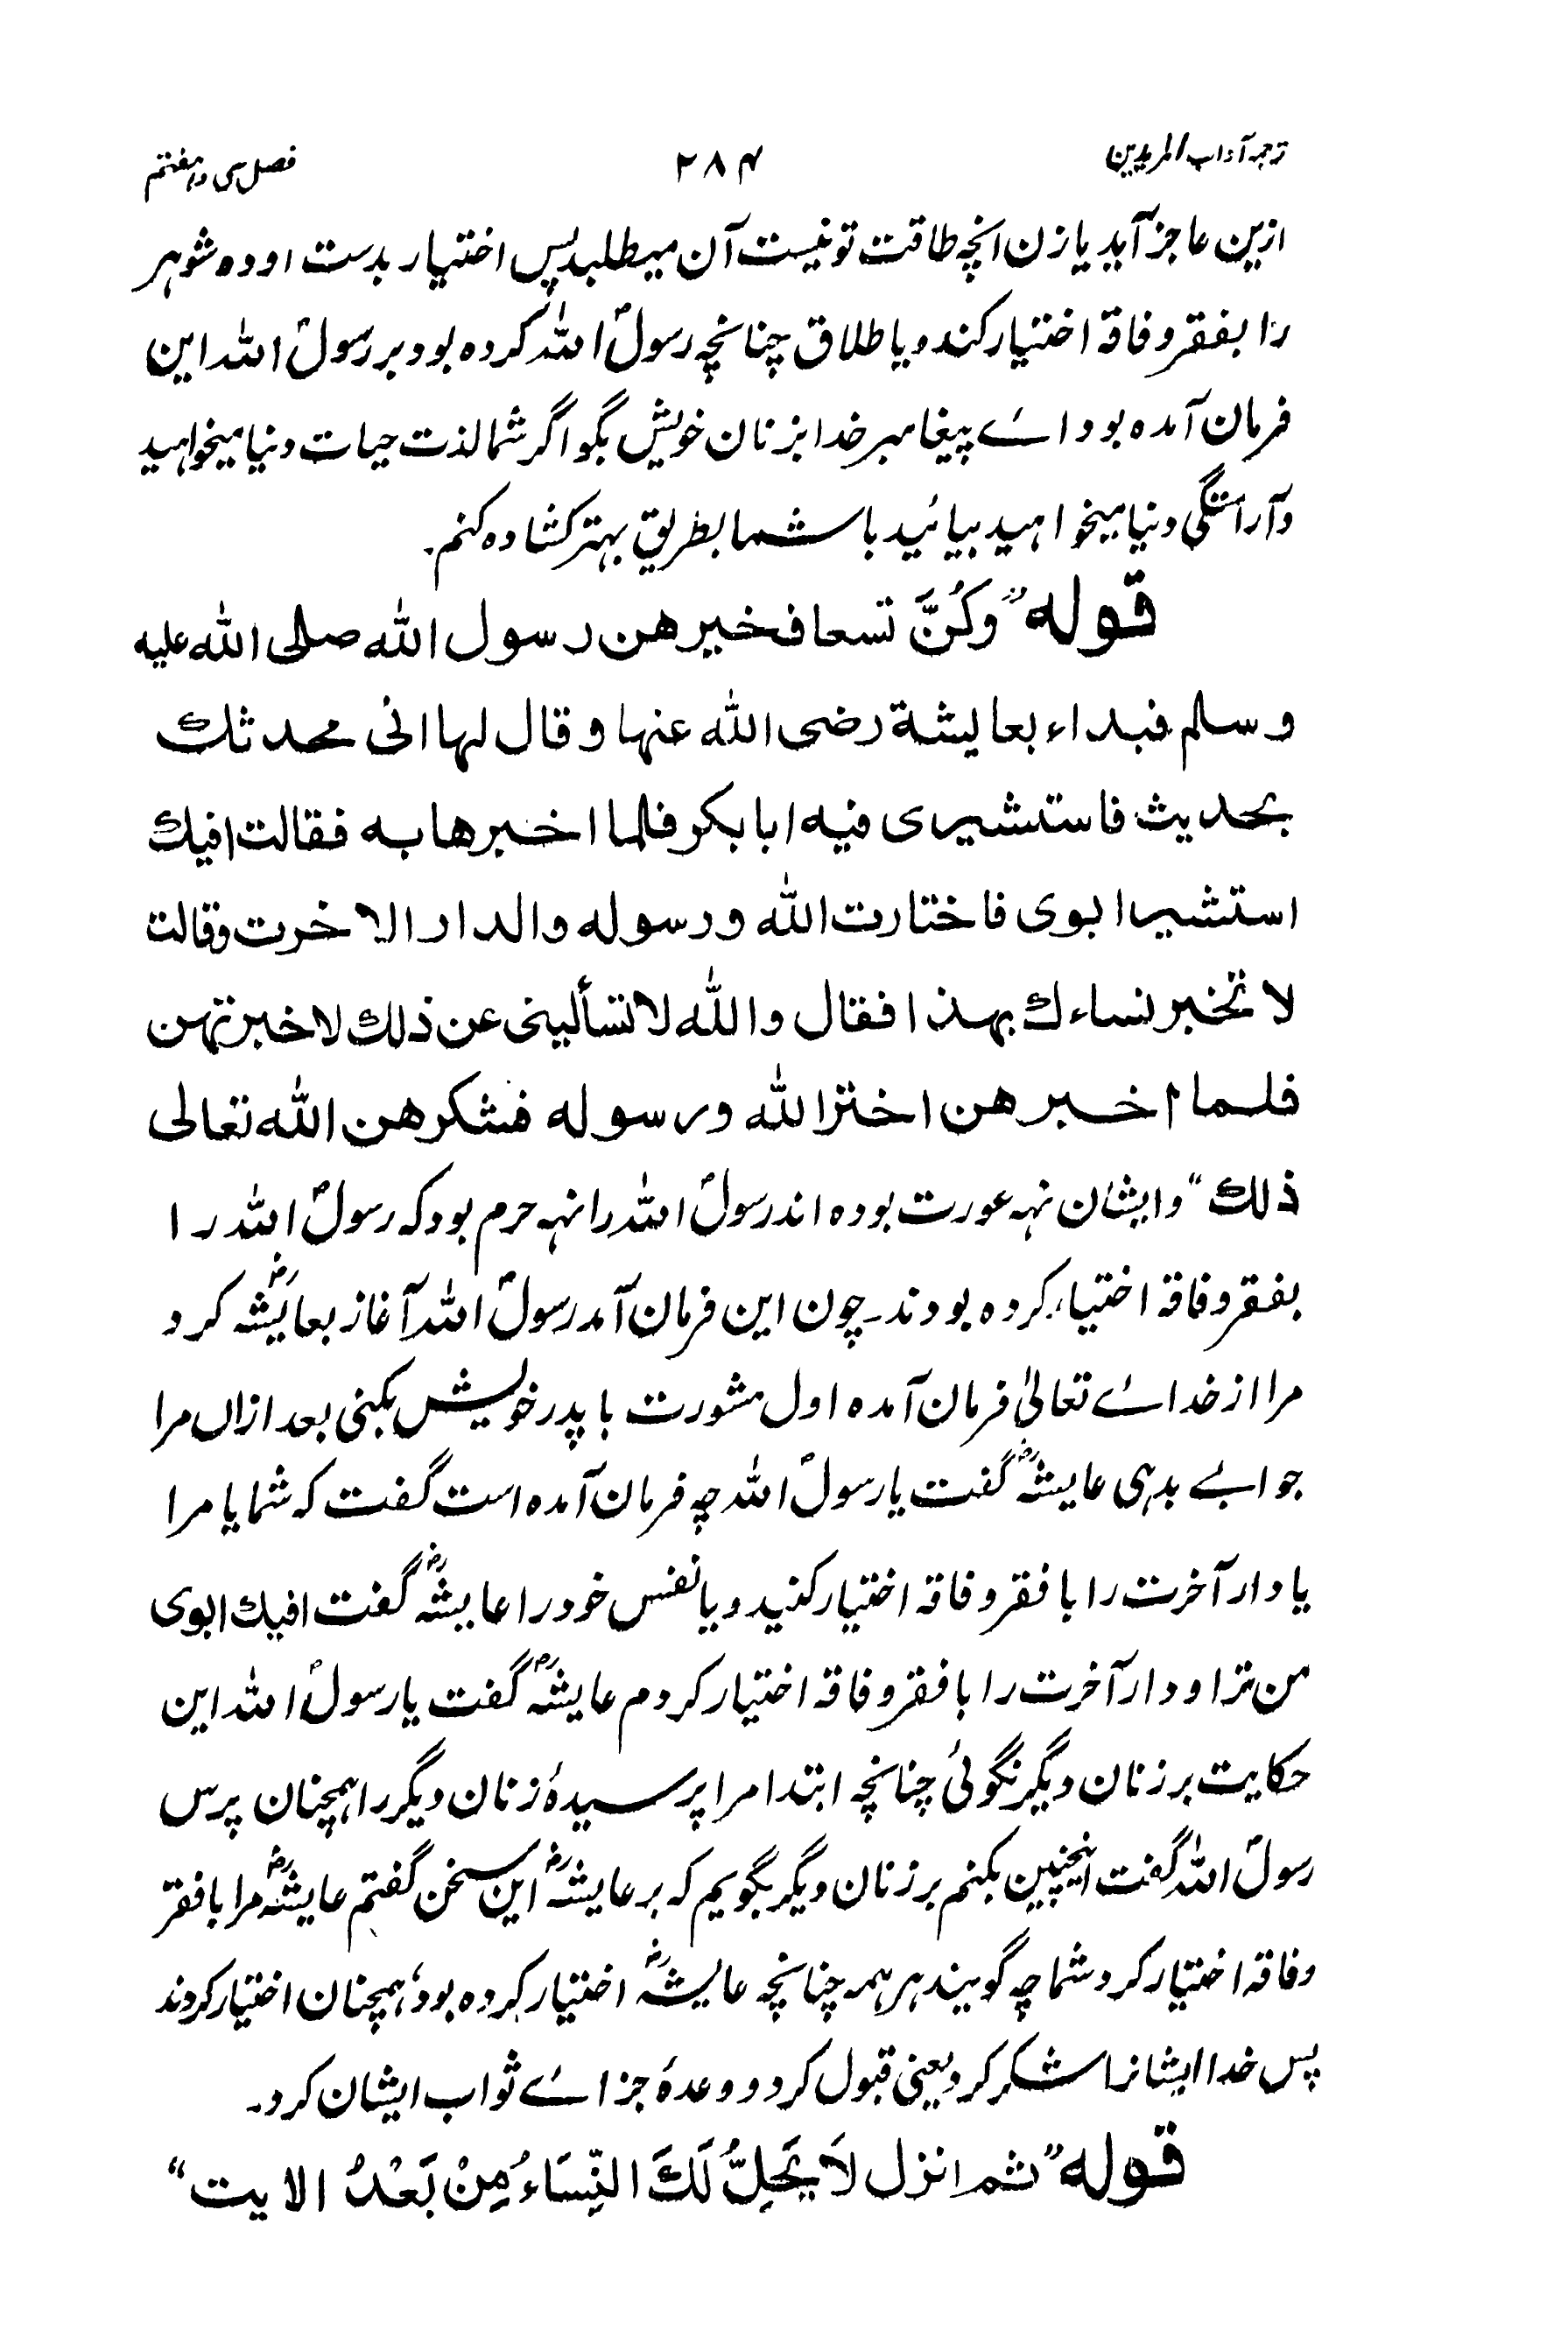 ترجمہ آداب المریدین ۲۸۴ فصل سی و ہفتم
ازین عاجز آید یا زن انچہ طاقت تو نیست آن میطلبد پس اختیار بدست او دہ شوہر
را بفقر و فاقہ اختیار کند و یا طلاق چنانچہ رسولؐ اللہ کردہ بود بر رسولؐ اللہ این
فرمان آمدہ بود اے پیغامبر خدا بزنان خویش بگو اگر شما لذت حیات دنیا میخواہید
و آراستگی دنیا میخواہید بیائید با شما بطریق بہتر کشادہ کنم۔
قوله ”وَكُنَّ تسعا فخیرهن رسول الله صلی الله علیه
وسلم فبداء بعایشة رضی الله عنها وقال لها انی محدثك
بحدیث فاستشیری فیه ابابکر فلما اخبرها به فقالت افیك
استشیر ابوی فاختارت الله ورسوله والدار الاخرت وقالت
لا تخبر نساءك بهذا فقال والله لا تسألینی عن ذلك لاخبرتهن
فلما اخبرهن اخترا لله ورسوله فشکرهن الله تعالی
ذلك“ و ایشان نہہ عورت بودہ اند رسولؐ اللہ را نہہ حرم بود کہ رسولؐ اللہ را
بفقر و فاقہ اختیار کردہ بودند۔ چون این فرمان آمد رسولؐ اللہ آغاز بعایشہؓ کرد
مرا از خداے تعالیٰ فرمان آمدہ اول مشورت با پدر خویش بکنی بعد ازاں مرا
جوابے بدہی عایشہؓ گفت یا رسولؐ اللہ چہ فرمان آمدہ است گفت کہ شما یا مرا
یا دار آخرت را با فقر و فاقہ اختیار کنید و یا نفس خود را عایشہؓ گفت افیك ابوی
من ترا و دار آخرت را با فقر و فاقہ اختیار کردم عایشہؓ گفت یا رسولؐ اللہ این
حکایت بر زنان دیگر نگوئی چنانچہ ابتدا مرا پرسیدہٗ زنان دیگر را ہمچنان پرس
رسولؐ اللہ گفت اینچنین بکنم بر زنان دیگر بگویم کہ بر عایشہؓ این سخن گفتم عایشہؓ مرا با فقر
و فاقہ اختیار کرد شما چہ گویند ہر ہمہ چنانچہ عایشہؓ اختیار کردہ بود، ہمچنان اختیار کردند
پس خدا ایشانرا شکر کرد یعنی قبول کرد و وعدہٗ جزاے ثواب ایشان کرد۔
قوله ”ثم انزل لَا يَحِلُّ لَكَ النِّسَاءُ مِنْ بَعْدُ الایت“